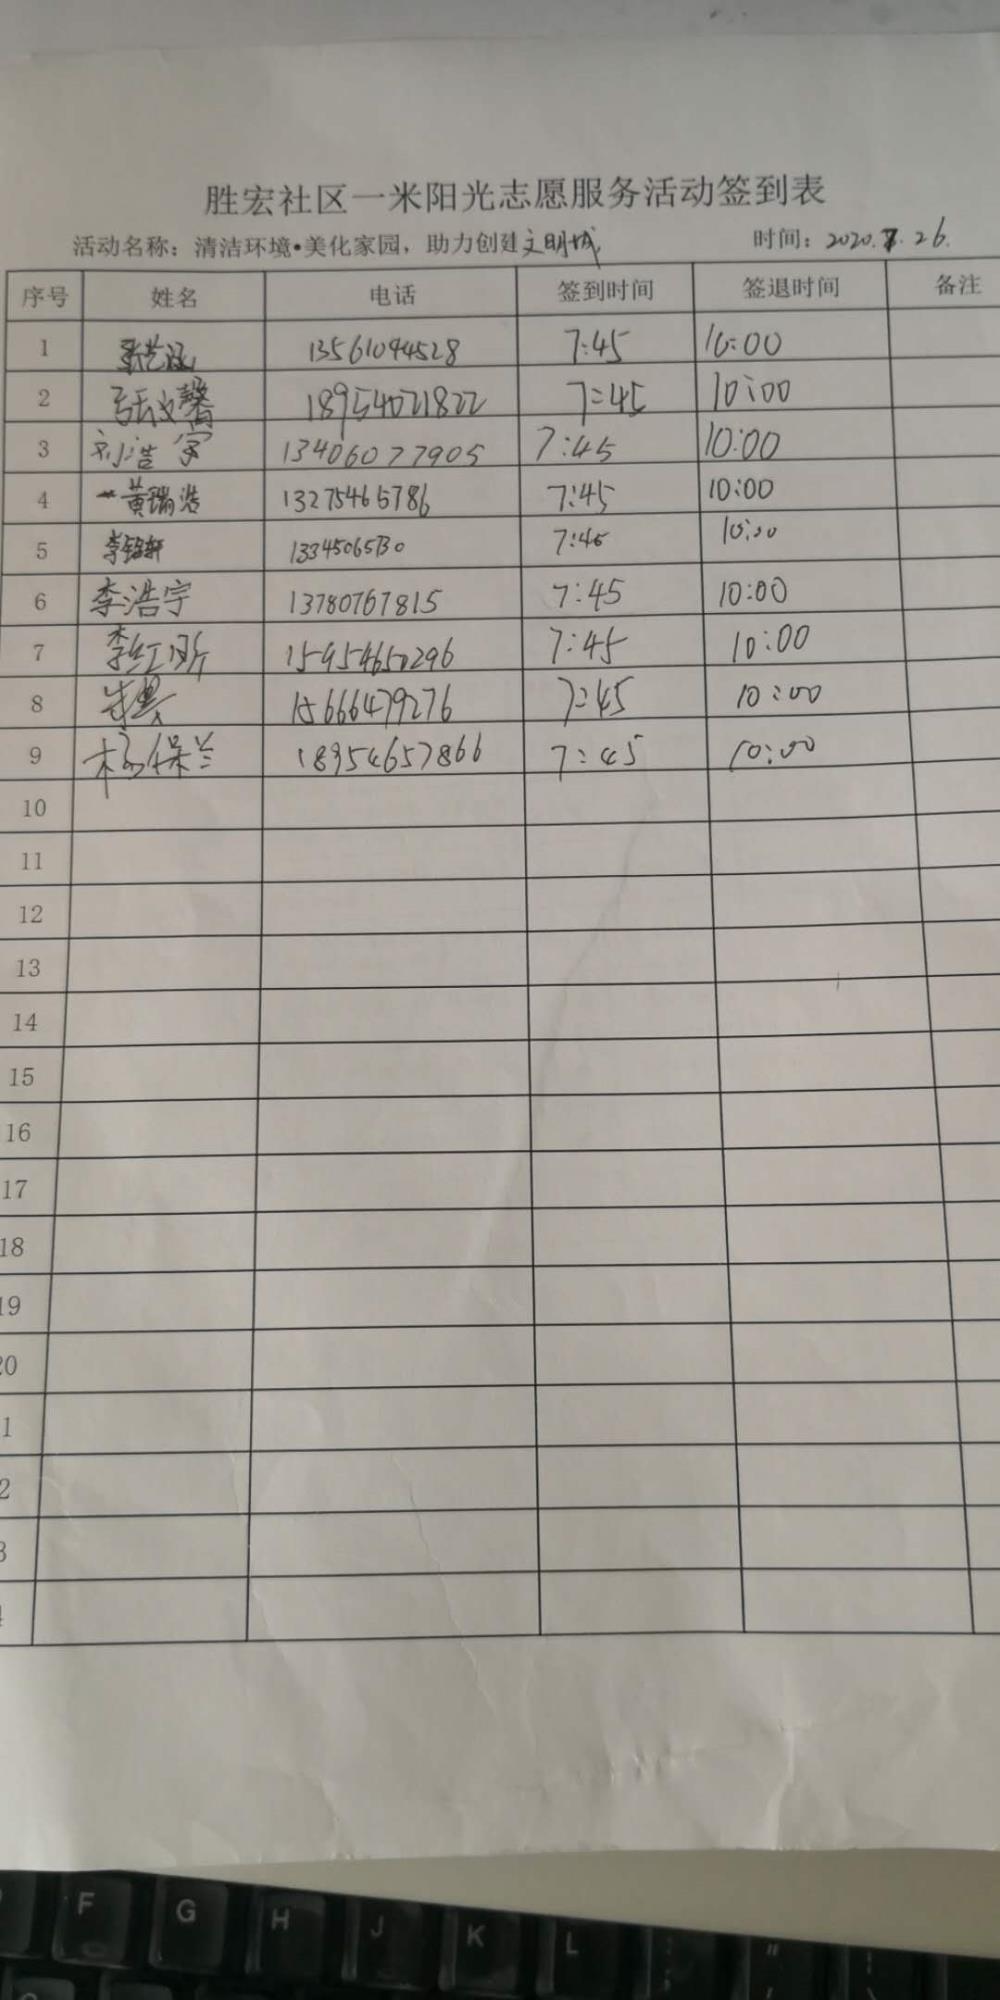 胜宏社区一米阳光志愿服务活动签到表
活动名称：清洁环境•美化家园，助力创建文明城 时间：2020.7.26.
序号 姓名 电话 签到时间 签退时间 备注
1 张艺涵 13561094528 7:45 10:00
2 张文馨 18954021822 7:45 10:00
3 刘浩宇 13406077905 7:45 10:00
4 黄瑞浩 13275465786 7:45 10:00
5 7:45 10:00
6 李浩宇 13780767815 7:45 10:00
7 李红 15954650296 7:45 10:00
8 15666479276 7:45 10:00
9 杨保兰 18954657866 7:45 10:00
10
11
12
13
14
15
16
17
18
19
20
1
2
3
4
F G H J K L